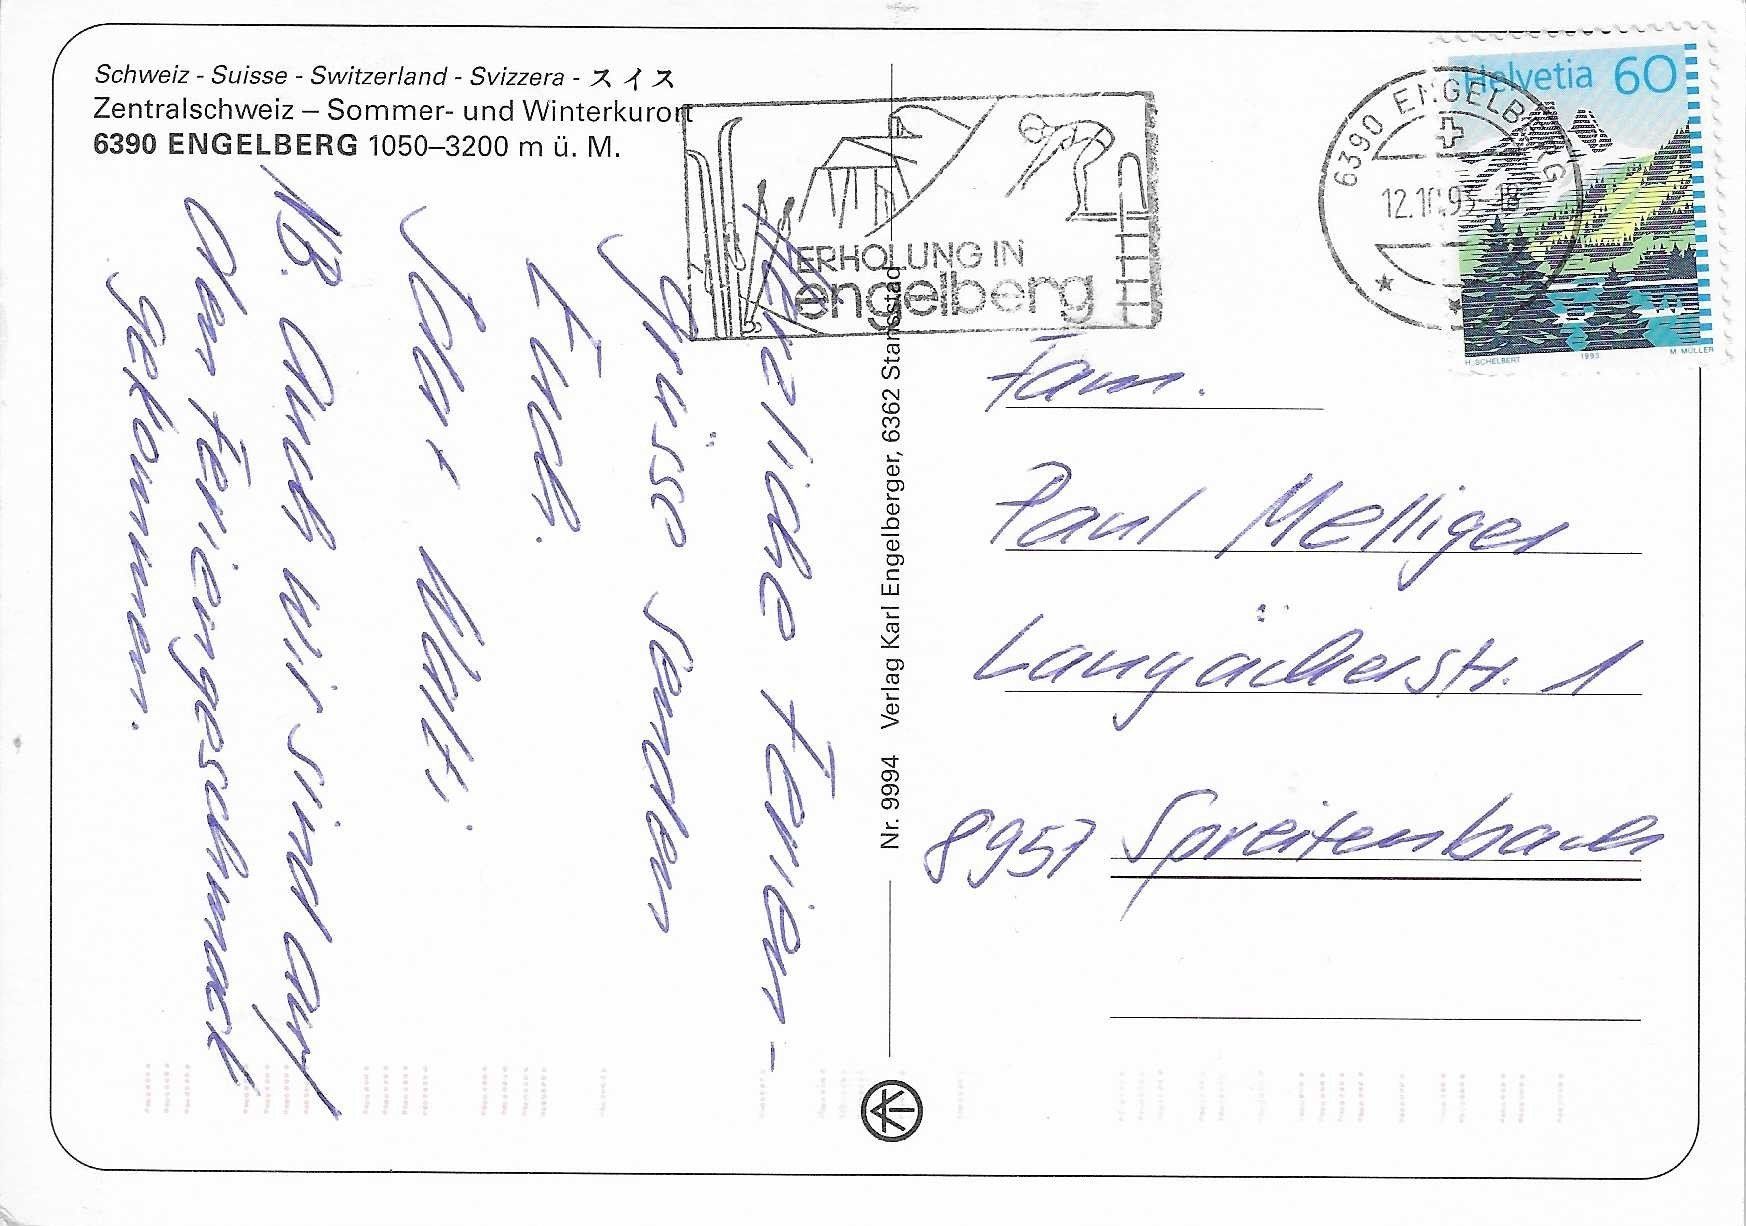 Schweiz - Suisse - Switzerland - Svizzera - スイス
Zentralschweiz – Sommer- und Winterkurort
6390 ENGELBERG 1050–3200 m ü. M.
ERHOLUNG IN
engelberg
6390 ENGELBERG
12.10.93-18
Helvetia 60
H. SCHELBERT 1993 M. MÜLLER
Herzliche Ferien-
grüsse senden
Euch.
Jda + Walti
NB. Auch wir sind auf
den Feriengeschmack
gekommen.
Nr. 9994 Verlag Karl Engelberger, 6362 Stansstad
Fam.
Paul Melliger
Langäckerstr. 1
8957 Spreitenbach